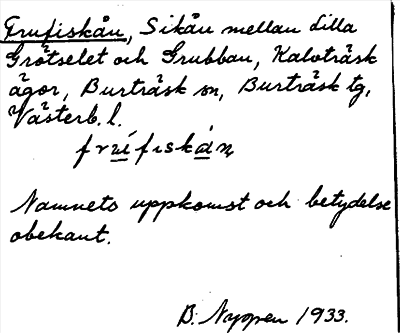 Frufiskån, Sikån mellan Lilla
Grötselet och Grubban, Kalvträsk
ägor, Burträsk sn, Burträsk tg,
Västerb. l.
frúfiskån
Namnets uppkomst och betydelse
obekant.
B. Nyppen 1933.